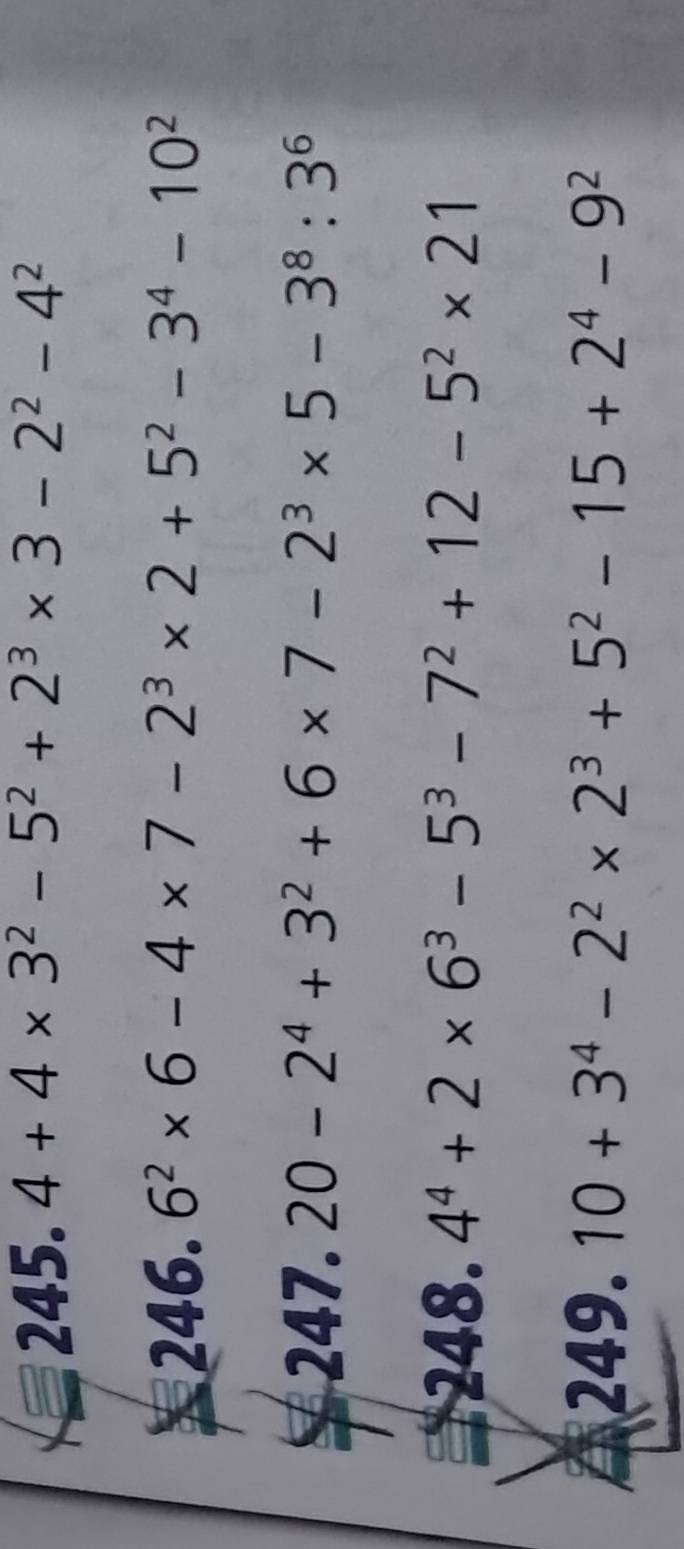 245. 4 + 4 × 3² – 5² + 2³ × 3 – 2² – 4²
246. 6² × 6 – 4 × 7 – 2³ × 2 + 5² – 3⁴ – 10²
247. 20 – 2⁴ + 3² + 6 × 7 – 2³ × 5 – 3⁸ : 3⁶
248. 4⁴ + 2 × 6³ – 5³ – 7² + 12 – 5² × 21
249. 10 + 3⁴ – 2² × 2³ + 5² – 15 + 2⁴ – 9²